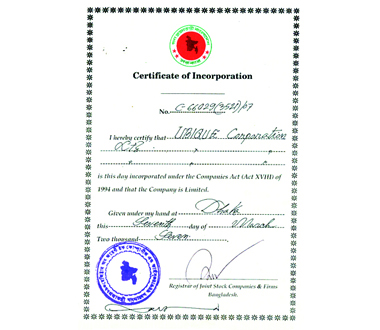 Certificate of Incorporation
No. C-66029(3521)/07
I hereby certify that UBIQUE Corporation
is this day incorporated under the Companies Act (Act XVIII) of
1994 and that the Company is Limited.
Given under my hand at Dhaka
this Seventh day of March
Two thousand Seven.
Registrar of Joint Stock Companies & Firms
Bangladesh.